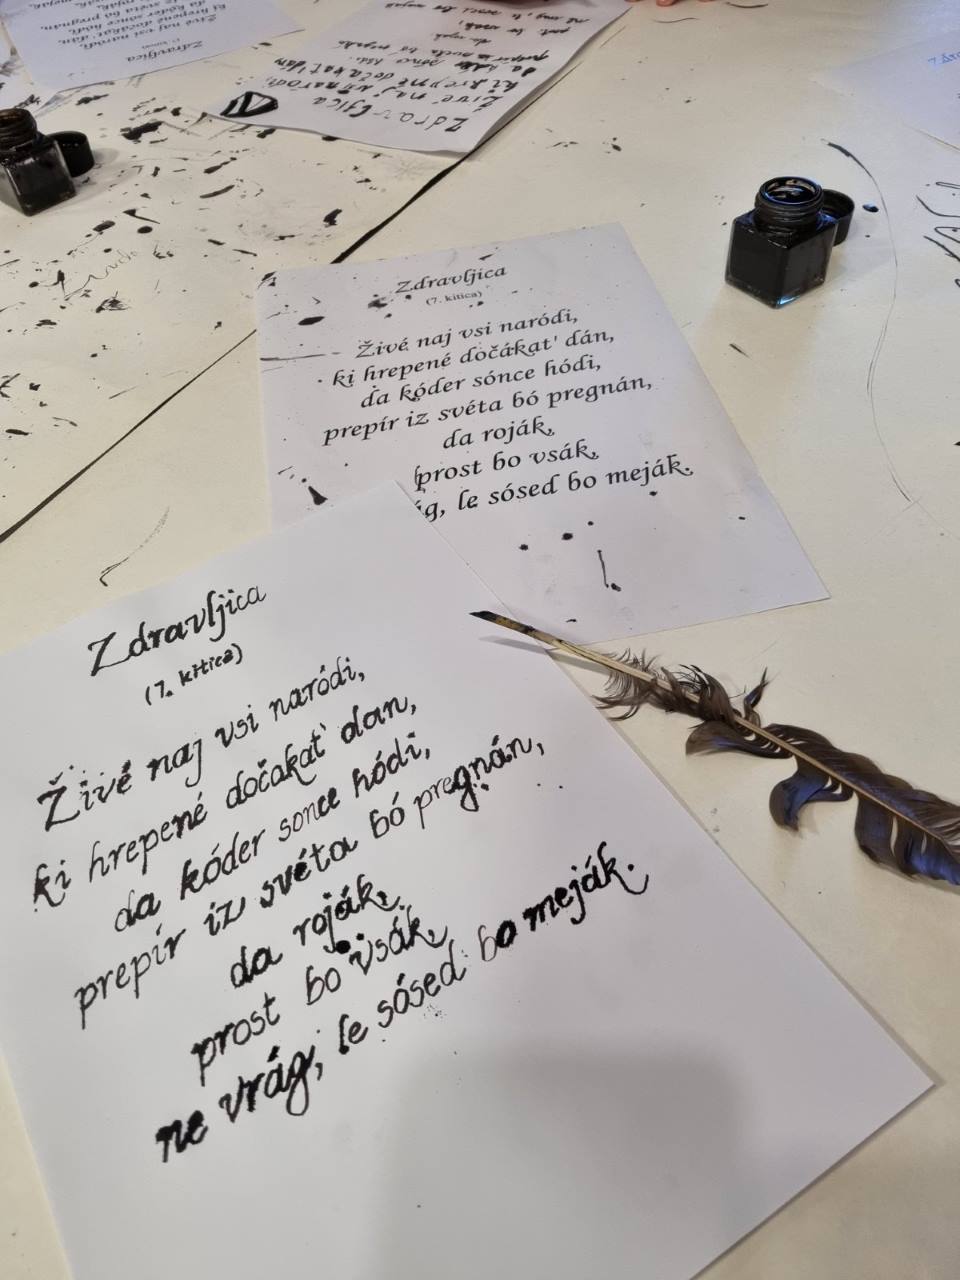 Zdravljica
(7. kitica)
Živé naj vsi naródi,
ki hrepené dočákat' dán,
da kóder sónce hódi,
prepír iz svéta bó pregnán,
da roják,
prost bo vsák,
le sósed bo meják.
Zdravljica
(7. kitica)
Živé naj vsi naródi,
ki hrepené dočakat' dan,
da kóder sonce hódi,
prepír iz svéta bó pregnán,
da roják,
prost bo vsák,
ne vrág, le sósed bo meják.
Zdravljica
Živé naj vsi naródi
ki hrepené dočákat' dán
Zdravljica
Živé naj vsi naródi,
ki hrepené dočákat' dán,
da kóder sónce hódi,